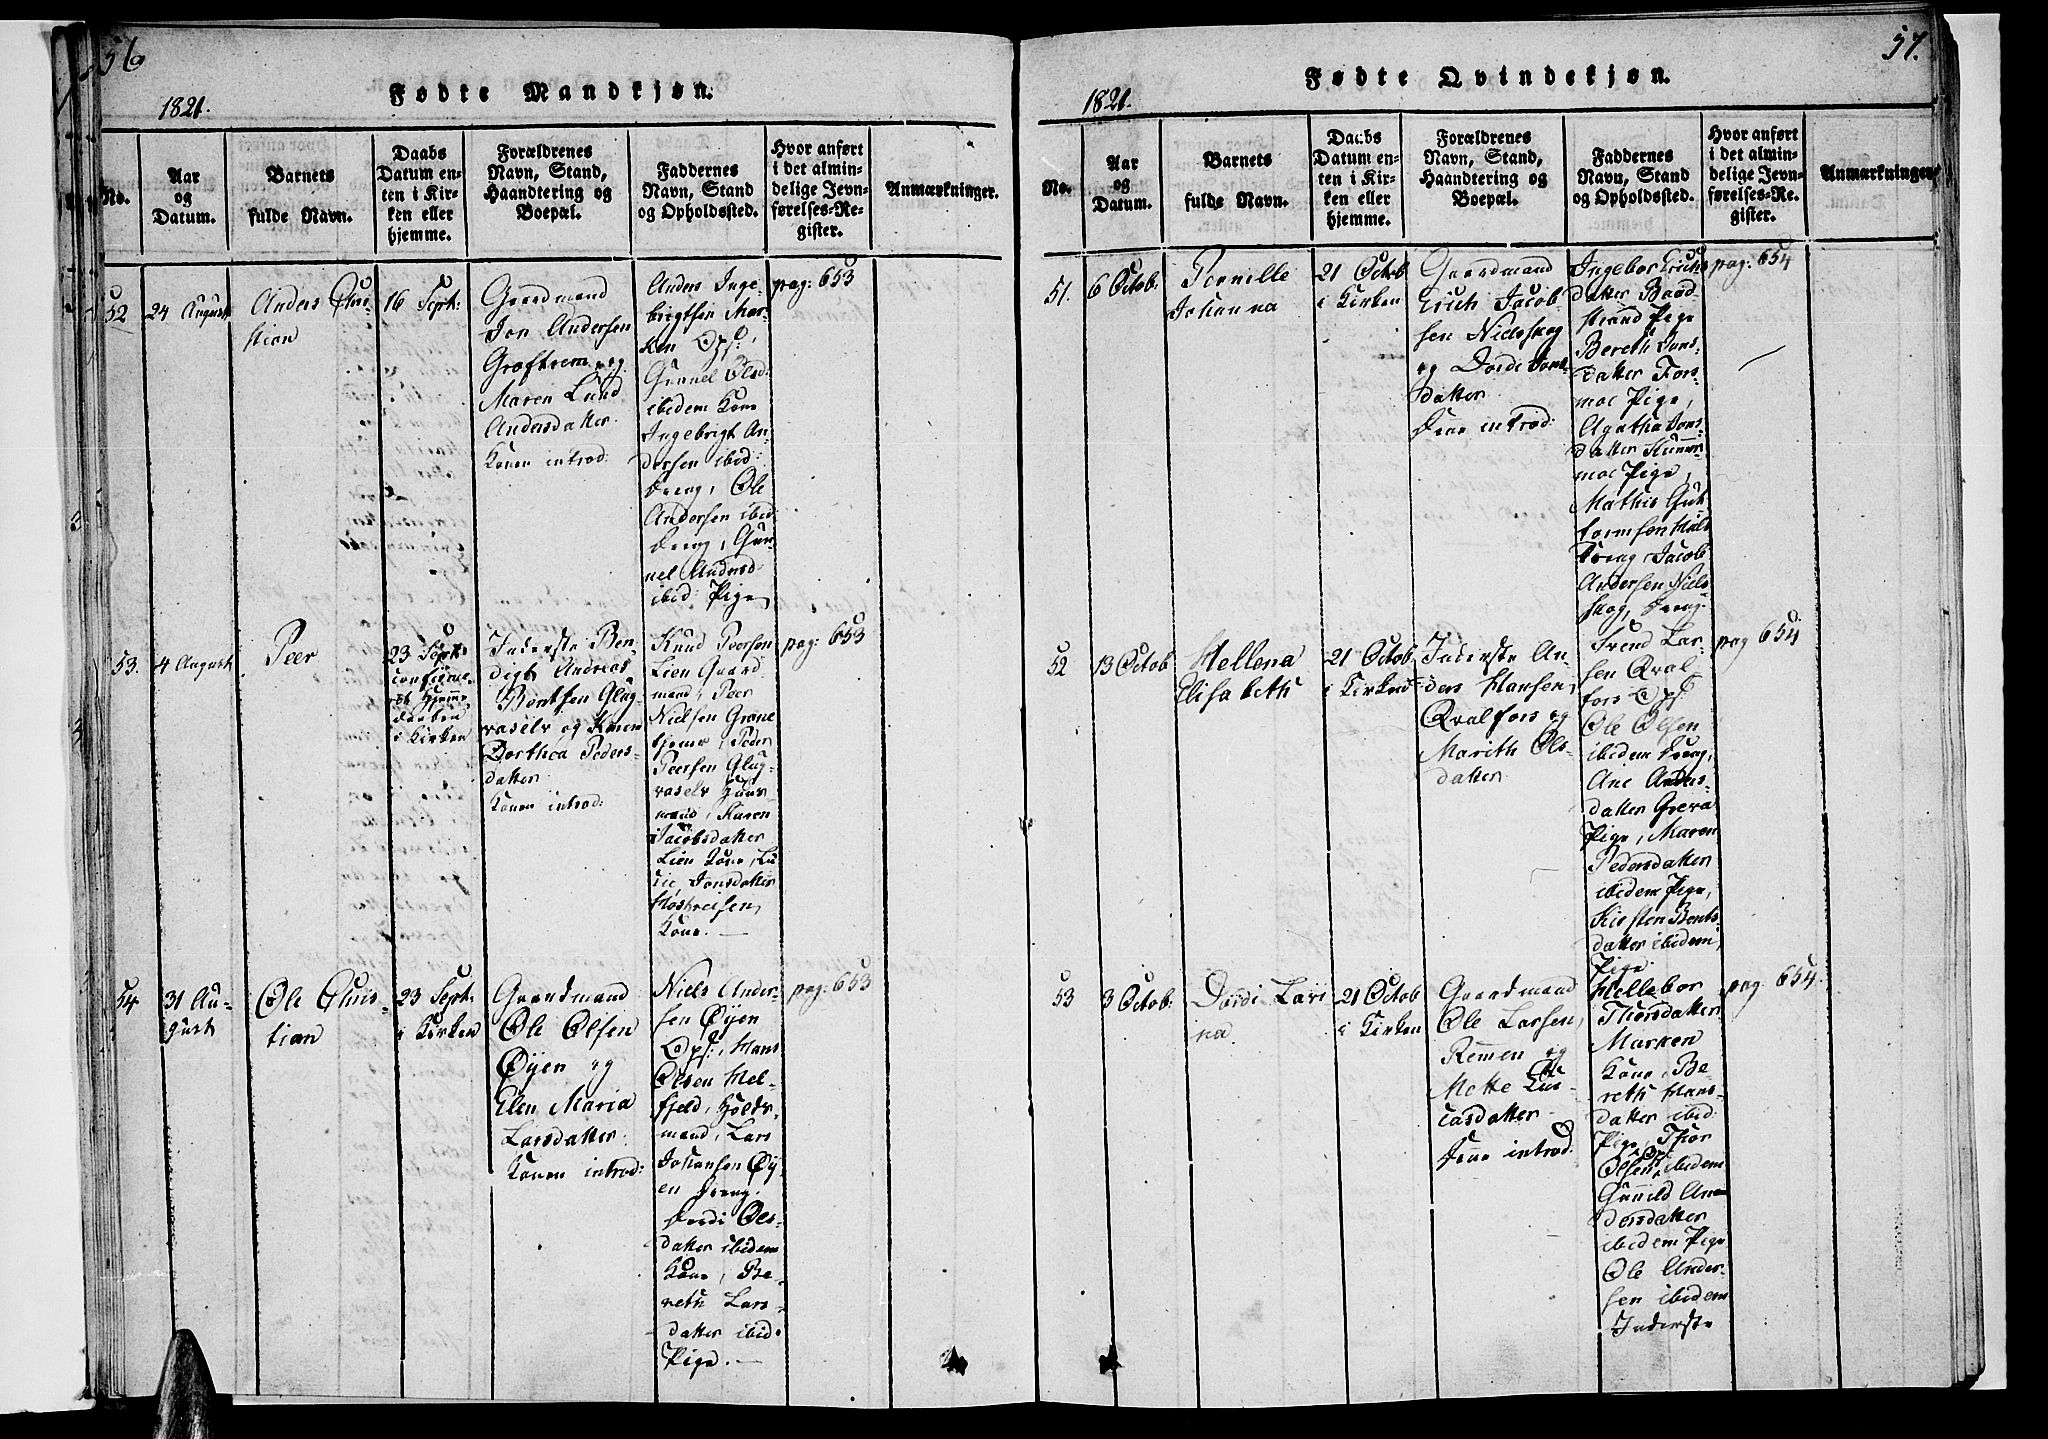 56
Fødte Mandkjøn.
1821.
No.
Aar
og
Datum.
Barnets
fulde Navn.
Daabs
Datum en-
ten i Kir-
ken eller
hjemme.
Forældrenes
Navn, Stand,
Haandtering og
Boepæl.
Faddernes
Navn, Stand
og Opholdssted.
Hvor anført
i det almin-
delige Jevn-
førelses-Re-
gister.
Anmærkninger.
52
24 August
Anders Chri-
stian
16 Sept:
Gaardmand
Jon Andersen
Groftrem og
Maren Lund
Andersdatter
Konen introd:
Anders Inge-
brigtsen Mar-
ken Ops:,
Gunnel Olsd:
ibidem Kone
Ingebrigt An-
dersen ibid:
Dreng, Ole
Andersen ibid
Dreng, Gun-
nel Andersd
ibid: Pige
pag: 653
53.
4 August
Peer
23 Sept:
confirme-
ret Hjemme
daaben
i Kirken
Inderste Ben-
digt Andreas
Bentsen Glug-
vaselv og Karen
Dorthea Peders-
datter
Konen introd:
Knud Iversen
Lien Gaard
mand, Peer
Nielsen Grane
hjemme, Peder
Peersen Glug-
vaselv Huus-
mand, Karen
Jacobsdatter
Lien Kone, Lu-
cie, Jonsdatter
Kone.
pag: 653
54
31 Au-
gust
Ole Chris-
tian
23 Sept:
i Kirken
Gaardmand
Ole Olsen
Øyen og
Elen Maria
Larsdatter.
Konen introd:
Niels Ander-
sen Øyen
Ops:, Hans
Olsen Mel-
fjeld, Holds-
mand, Lars
Johansen Øy-
en Dreng.
Dordi Ols-
datter ibidem
Kone, Be-
reth Lars-
datter ibid:
Pige.
pag: 653
57.
Fødte Qvindekjøn.
1821.
No.
Aar
og
Datum.
Barnets
fulde Navn.
Daabs
Datum en-
ten i Kir-
ken eller
hjemme.
Forældrenes
Navn, Stand,
Haandtering og
Boepæl.
Faddernes
Navn, Stand
og Opholdssted.
Hvor anført
i det almin-
delige Jevn-
førelses-Re-
gister.
Anmærkninger
51.
6 Octob:
Pernille
Johanna
21 Octob
i Kirken
Gaardmand
Erich Jacob
sen Nielsskog
og Dordi Jons-
datter
Kone introd:
Ingebor Erichs
datter Baad-
strand Pige
Bereth Jons-
datter Fors-
moe Pige,
Agatha Jons-
datter
moe Pige,
Mathis Gut-
tormsen
Dreng, Jacob
Andersen Niels-
skog, Dreng.
pag: 654
52
13 Octob
Hellena
Elisabeth
21 Octob
i Kirken
Inderste An-
ders Hansen,
Qvalfors og
Marith Ols-
datter
Svend Lar-
sen Qval
fors Ops
Ole Olsen
ibidem Dreng,
Ane Anders-
datter Greva
Pige, Maren
Pedersdatter
ibidem Pige,
Kiersten Bents
datter ibidem
Pige
pag 654
53
3 Octob:
Dordi Lari
na.
21 Octob
i Kirken
Gaardmand
Ole Larsen,
Remen og
Mette Lu-
casdatter
Kone introd:
Hellebor
Thorsdatter
Marken
Kone, Be-
reth Hans-
datter ibid:
Pige, Thor
Olsen, Ops ibidem
Gunnild An-
dersdatter
ibidem Pige
Ole Ander-
sen ibidem
Inderste
pag: 654.